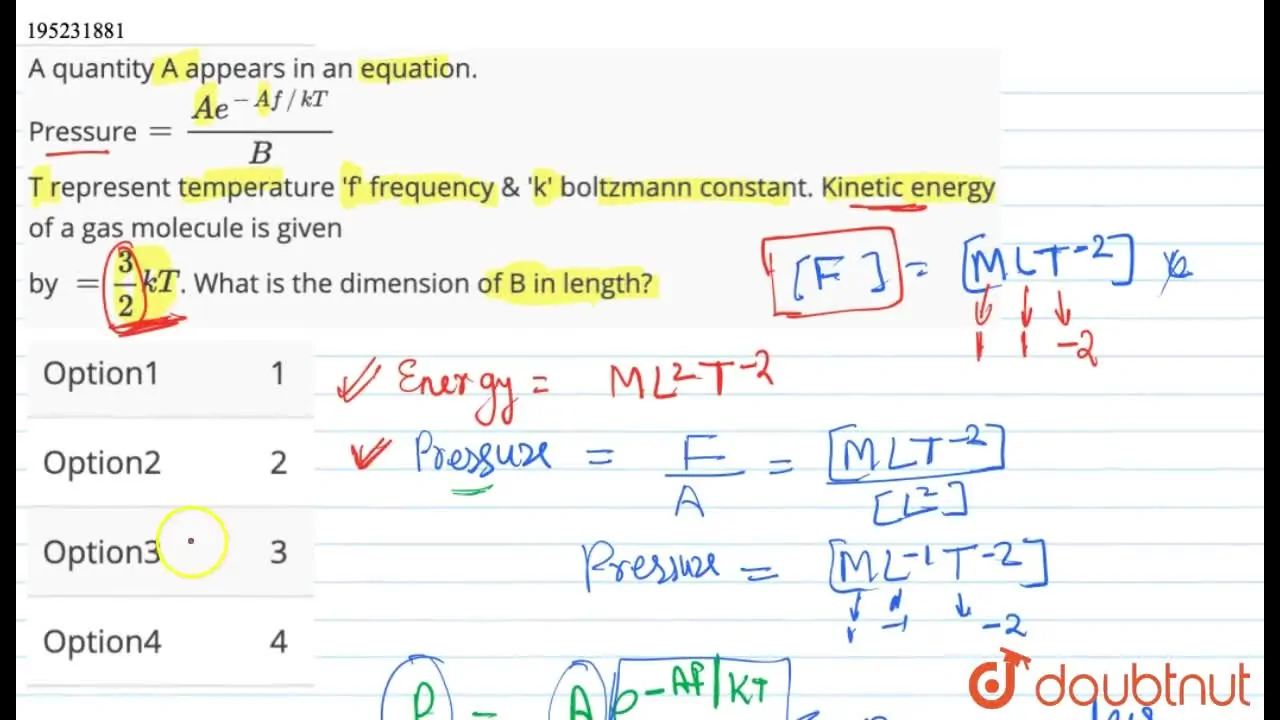 195231881
A quantity A appears in an equation.
Pressure = Ae^{-Af/kT} / B
T represent temperature 'f' frequency & 'k' boltzmann constant. Kinetic energy
of a gas molecule is given
by = 3/2 kT. What is the dimension of B in length?
[F] = [MLT-2]
1 1 -2
Option1 1
Energy = ML2T-2
Option2 2
Pressure = F/A = [MLT-2]/[L2]
Option3 3
Pressure = [ML-1T-2]
1 -1 -2
Option4 4
P = A e-Af/KT
doubtnut